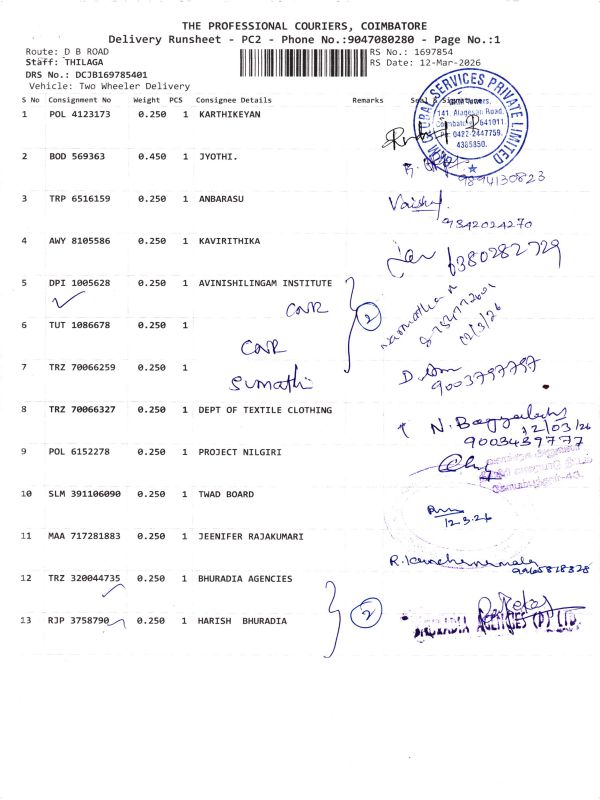 THE PROFESSIONAL COURIERS, COIMBATORE
Delivery Runsheet - PC2 - Phone No.:9047080280 - Page No.:1
Route: D B ROAD RS No.: 1697854
Staff: THILAGA RS Date: 12-Mar-2026
DRS No.: DCJB169785401
Vehicle: Two Wheeler Delivery
S No Consignment No Weight PCS Consignee Details Remarks Seal & Signature
1 POL 4123173 0.250 1 KARTHIKEYAN
SERVICES PRIVATE LIMITED
141, Alagesan Road,
641011
0422-2447759,
4385850.
2 BOD 569363 0.450 1 JYOTHI.
9894130823
3 TRP 6516159 0.250 1 ANBARASU
9842024270
4 AWY 8105586 0.250 1 KAVIRITHIKA
6380282729
5 DPI 1005628 0.250 1 AVINISHILINGAM INSTITUTE
2
12/3/26
6 TUT 1086678 0.250 1
7 TRZ 70066259 0.250 1
Sumathi
9003797797
8 TRZ 70066327 0.250 1 DEPT OF TEXTILE CLOTHING
12/03/26
9003439777
9 POL 6152278 0.250 1 PROJECT NILGIRI
10 SLM 391106090 0.250 1 TWAD BOARD
12.3.26
11 MAA 717281883 0.250 1 JEENIFER RAJAKUMARI
12 TRZ 320044735 0.250 1 BHURADIA AGENCIES
2
13 RJP 3758790 0.250 1 HARISH BHURADIA
BHURADIA AGENCIES (P) LTD.